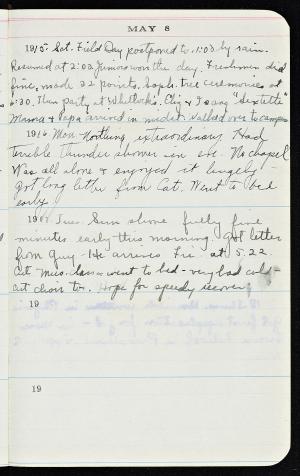 MAY 8
1915 Sat. Field Day postponed to 1:00 by rain.
Resumed at 2:00 Juniors won the day. Freshmen did
fine, made 22 points. Soph. tree ceremonies at
6:30. Then party at Whitlocks. sang "sextette"
Mama & Papa arrived in midst. Walked over to campus
1916 Mon. Nothing extraordinary. Had
terrible thunder shower in eve. No chapel
Was all alone & enjoyed it hugely -
got long letter from Cat. Went to bed
early
19 Tues. Sun shone fully five
minutes early this morning. Got letter
from Guy - He arrives Fri at 5.22.
Cut Miss. class - went to bed - very bad cold -
cut choir too. Hope for speedy recovery
19
19